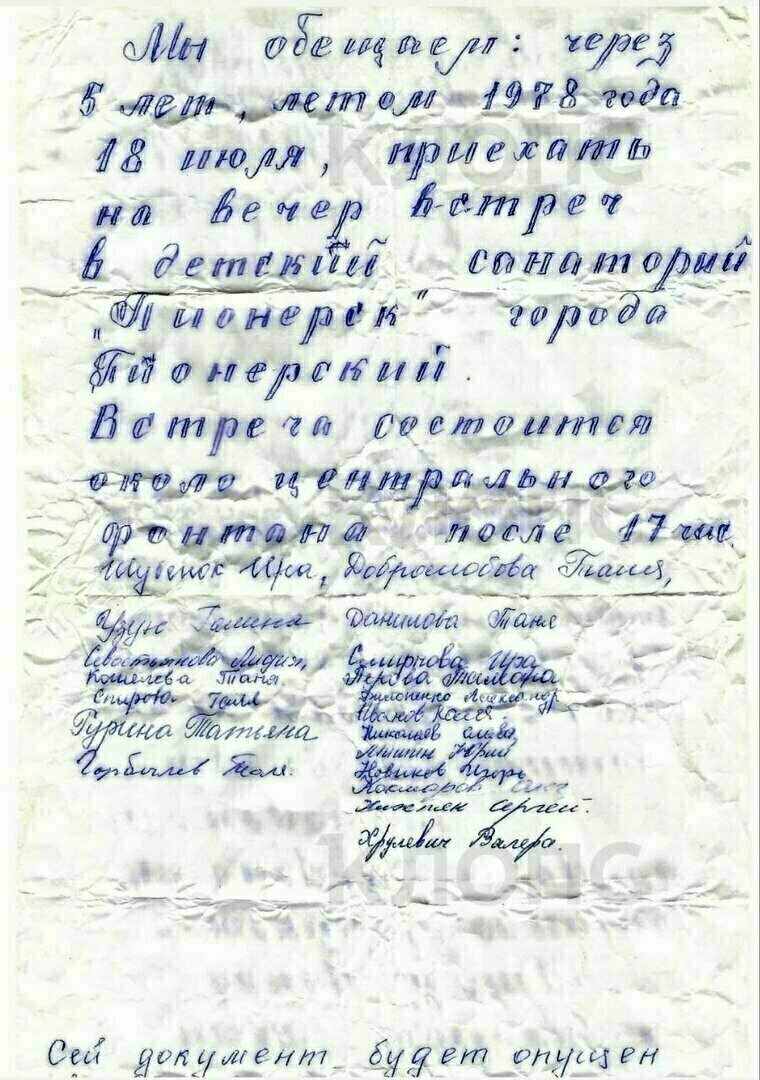 Мы обещаем: через
5 лет, летом 1978 года
18 июля, приехать
на вечер встреч
в детский санаторий
"Пионерск" города
Пионерский.
Встреча состоится
около центрального
фонтана после 17 час.
Ира, Добромобова Таня,
Узун Галина Данилова Таня
Севостьянова Лидия, Смирнова Ира
Кошелева Таня. Перова Тамара
Спирова Галя Филоненко Александр
Гурина Татьяна Иванов Коля.
Николаев Слава
Мишин Юрий
Горбачев Толя. Новиков Игорь
Комаров
Сергей.
Хрулевич Валера.
клопс
клопс
клопс
Сей документ будет опущен